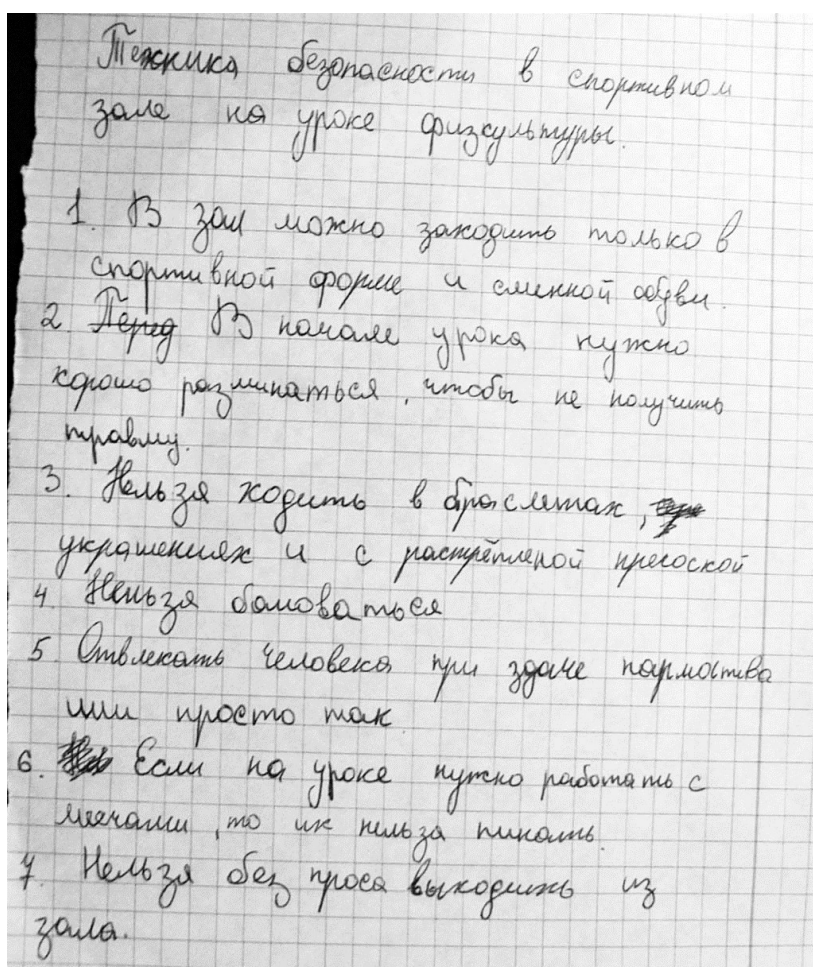 Техника безопасности в спортивном
зале на уроке физкультуры.
1. В зал можно заходить только в
спортивной форме и сменной обуви.
2 Перед В начале урока нужно
хорошо разминаться, чтобы не получить
травму.
3. Нельзя ходить в браслетах,
украшениях и с растрёпленой прической
4. Нельзя баловаться
5. Отвлекать человека при здаче нармоства
или просто так
6. Если на уроке нужно работать с
мячами, то их нельза пинать.
7. Нельзя без проса выходить из
зала.